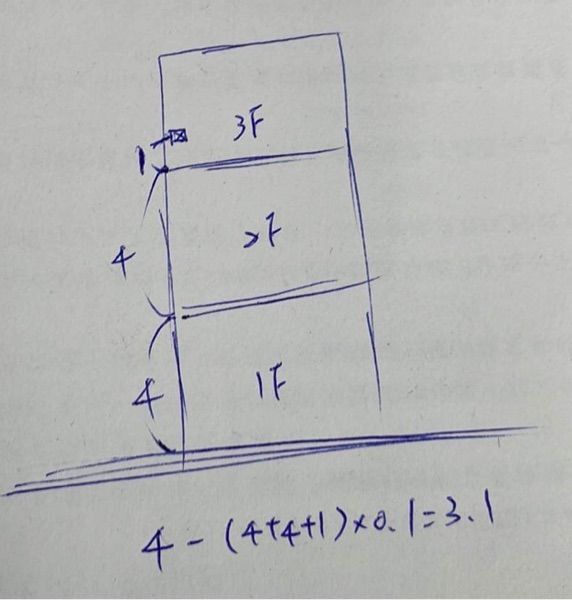 3F
1
2F
4
1F
4
4-(4+4+1)×0.1=3.1